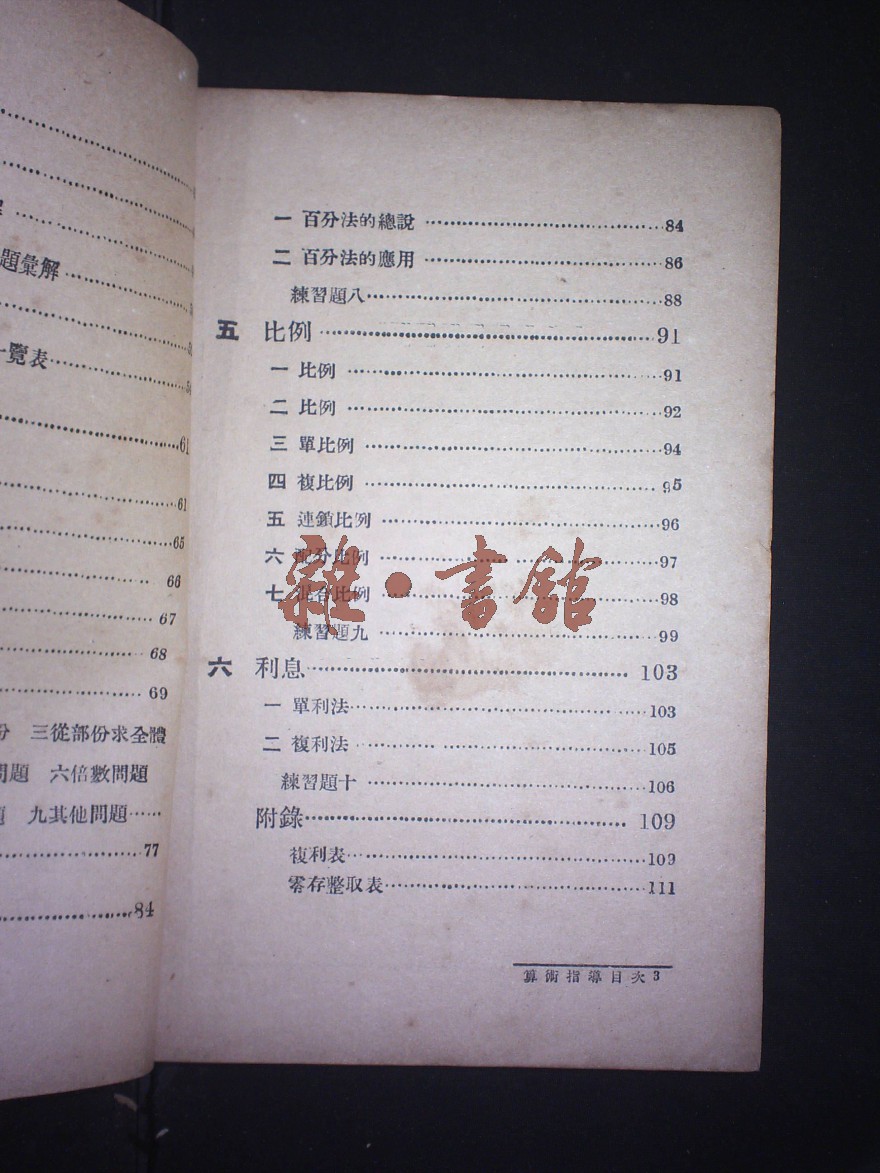 題彙解
一覽表
61
61
65
66
67
68
69
三從部份求全體
問題 六倍數問題
九其他問題
77
84
一 百分法的總說 84
二 百分法的應用 86
練習題八 88
五 比例 91
一 比例 91
二 比例 92
三 單比例 94
四 複比例 95
五 連鎖比例 96
六 配分比例 97
七 混合比例 98
練習題九 99
六 利息 103
一 單利法 103
二 複利法 105
練習題十 106
附錄 109
複利表 109
零存整取表 111
算術指導目次 3
雜·書館